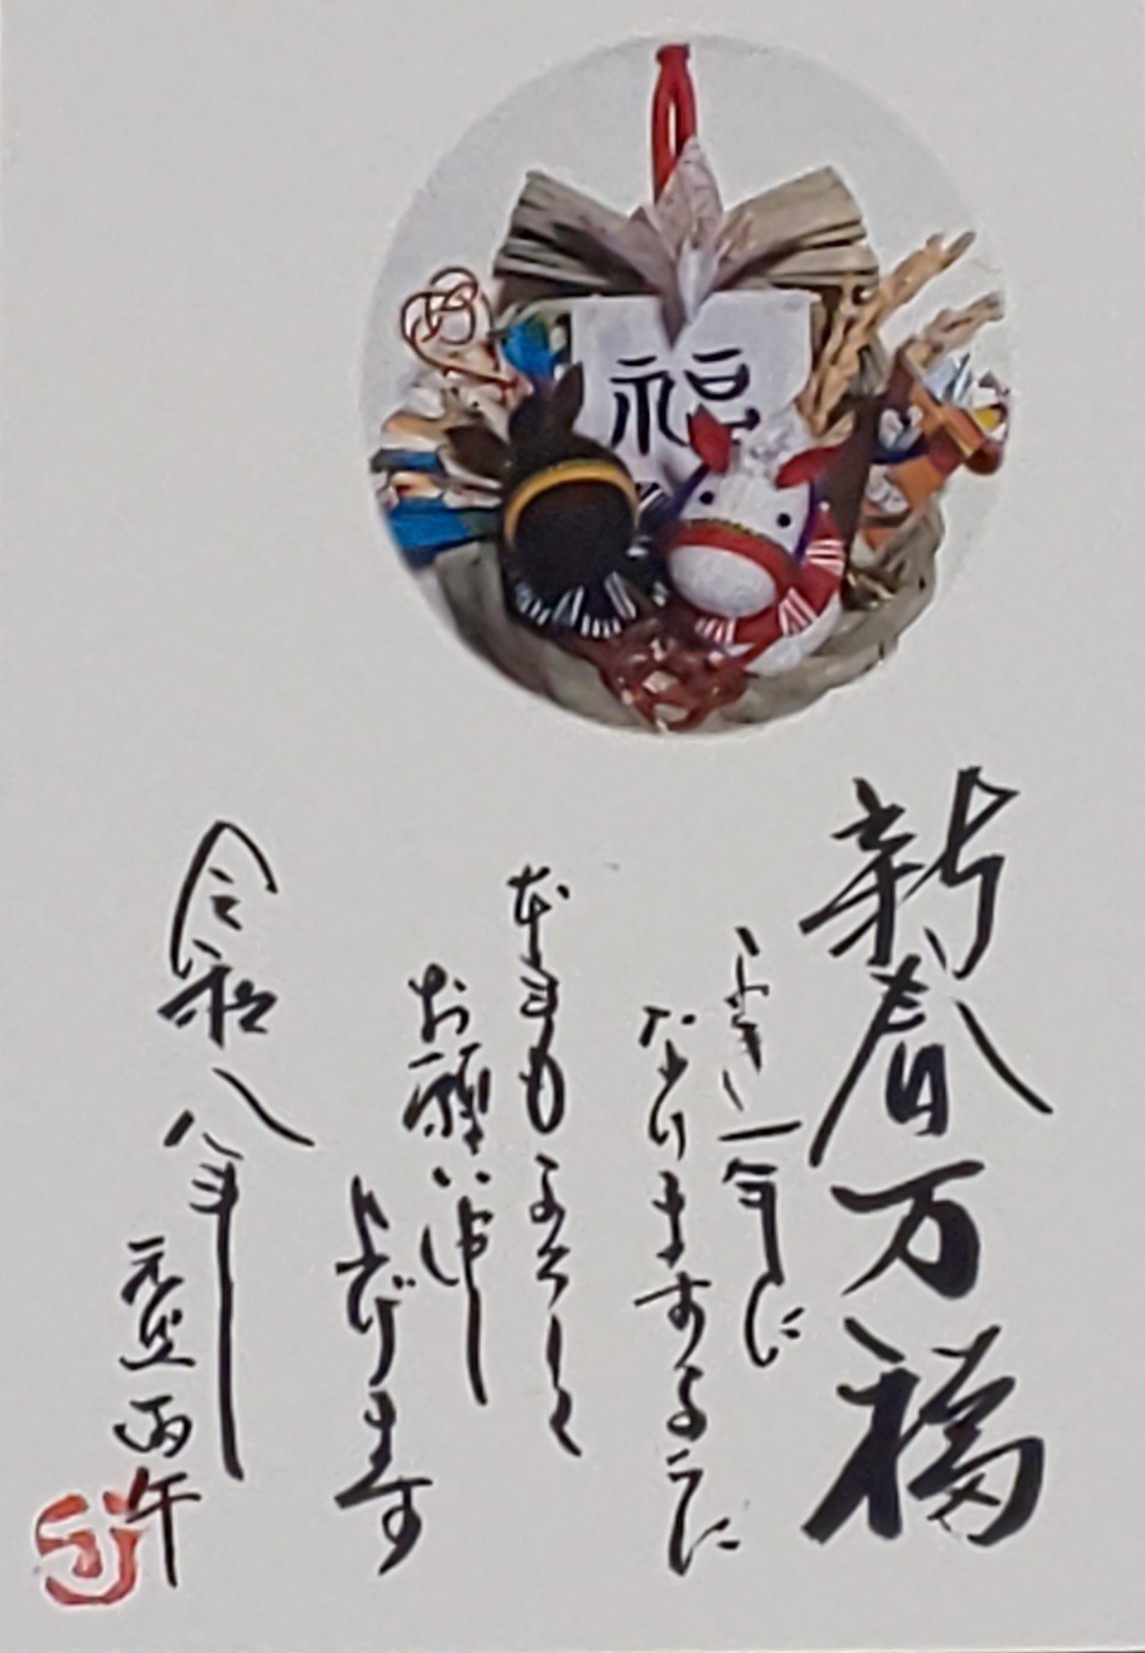 福
新春万福
幸い一年に
なりますように
本年もよろしく
お願い申し
上げます
令和八年
元旦 丙午